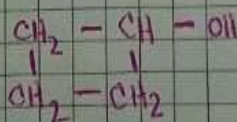 CH₂ - CH - OH
CH₂ - CH₂